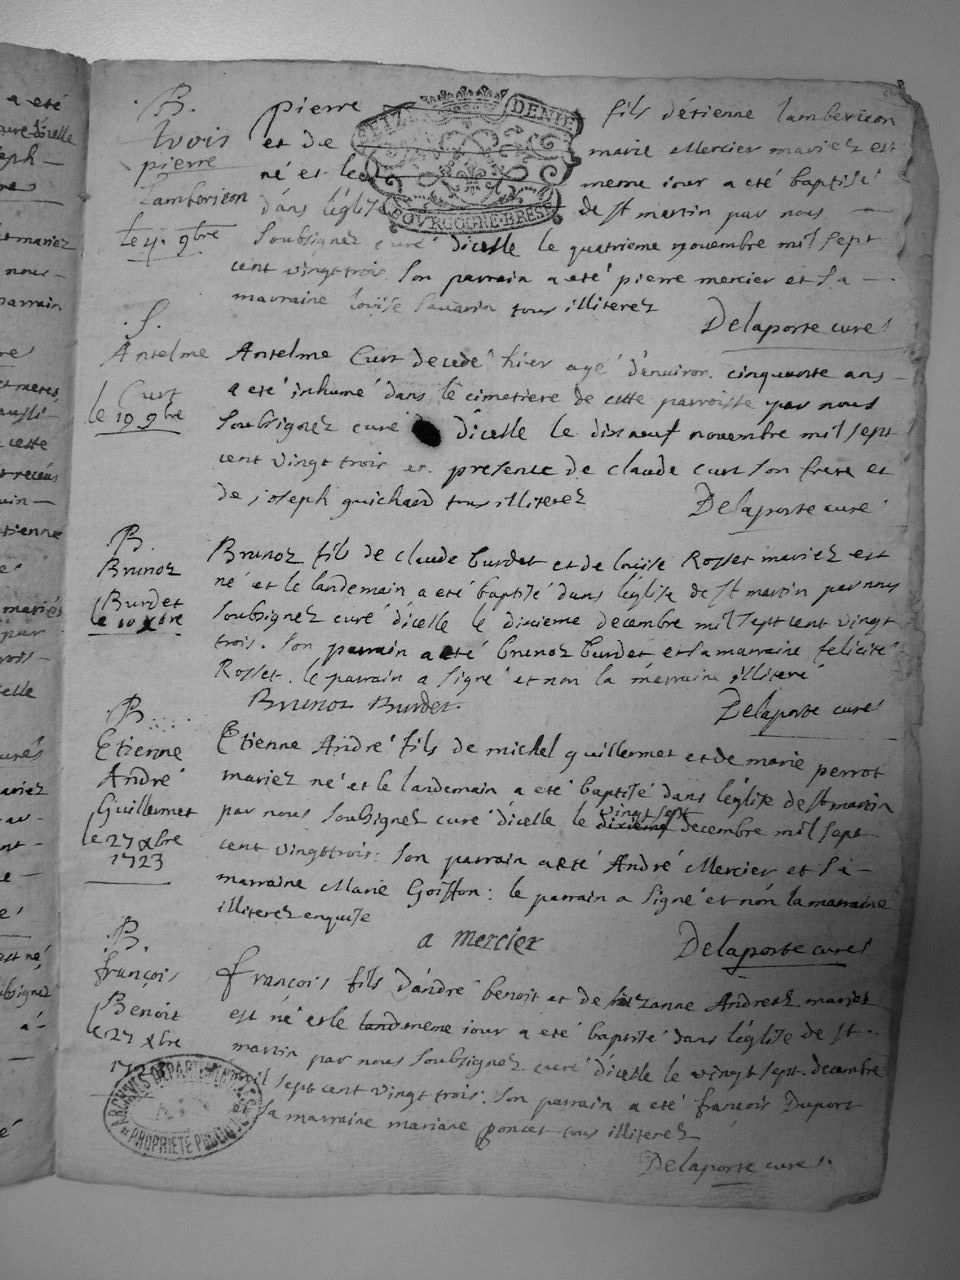 a eté
ph -
mariez
nous -
parrain
cette
etienne
mariés
B.
pierre
Lamberieon
le 4. 9bre
pierre SEIZE DENIE fils d'étienne lamberieon
et de marie Mercier mariez est
né et le meme iour a eté baptisé
dans l'églis de st martin par nous -
BOVRGOGNE·BRESSE
soubsignez curé dicelle le quatrieme novembre mil sept
cent vingt trois son parrain a eté pierre mercier et sa -
marraine louise savarin tous illiterez
Delaporte curé
S.
Antelme
Curt
le 19 9bre
Antelme Curt decedé hier agé d'environ cinquante ans -
a eté inhumé dans le cimetiere de cette parroisse par nous
soubsignez curé dicelle le dixneuf novembre mil sept
cent vingt trois en presence de claude curt son frere et
de joseph guichard tous illiterez
Delaporte curé
B.
Brunoz
Burdet
le 10 xbre
Brunoz fils de claude burdet et de louise Rosset mariez est
né et le landemain a eté baptisé dans l'église de st martin par nous
soubsignez curé dicelle le dixieme decembre mil sept cent vingt
trois. son parrain a eté brunoz burdet et sa marraine felicité
Rosset. le parrain a signé et non la marraine illiteré
Brunoz Burdet.
Delaporte curé
B.
Etienne
André
Guillermet
le 27 xbre
1723
Etienne André fils de michel guillermet et de marie perrot
mariez né et le landemain a eté baptisé dans l'église de st martin
par nous soubsignez curé dicelle le dixieme vingt sept decembre mil sept
cent vingttrois: son parrain a eté André Mercier et sa -
marraine Marie Goiffon: le parrain a signé et non la marraine
illiterez enquise
a mercier
Delaporte curé
B.
françois
Benoit
le 27 xbre
françois fils d'andré benoit et de suzanne Andrez mariez
est né et le land meme iour a eté baptisé dans l'église de st -
martin par nous soubsignez curé dicelle le vingt sept decembre
mil sept cent vingt trois. son parrain a eté françois Duport
et sa marraine mariane poncet tous illiterez
Delaporte curé.
ARCHIVES DEPARTEMENTALES
PROPRIETE PUBLIQUE